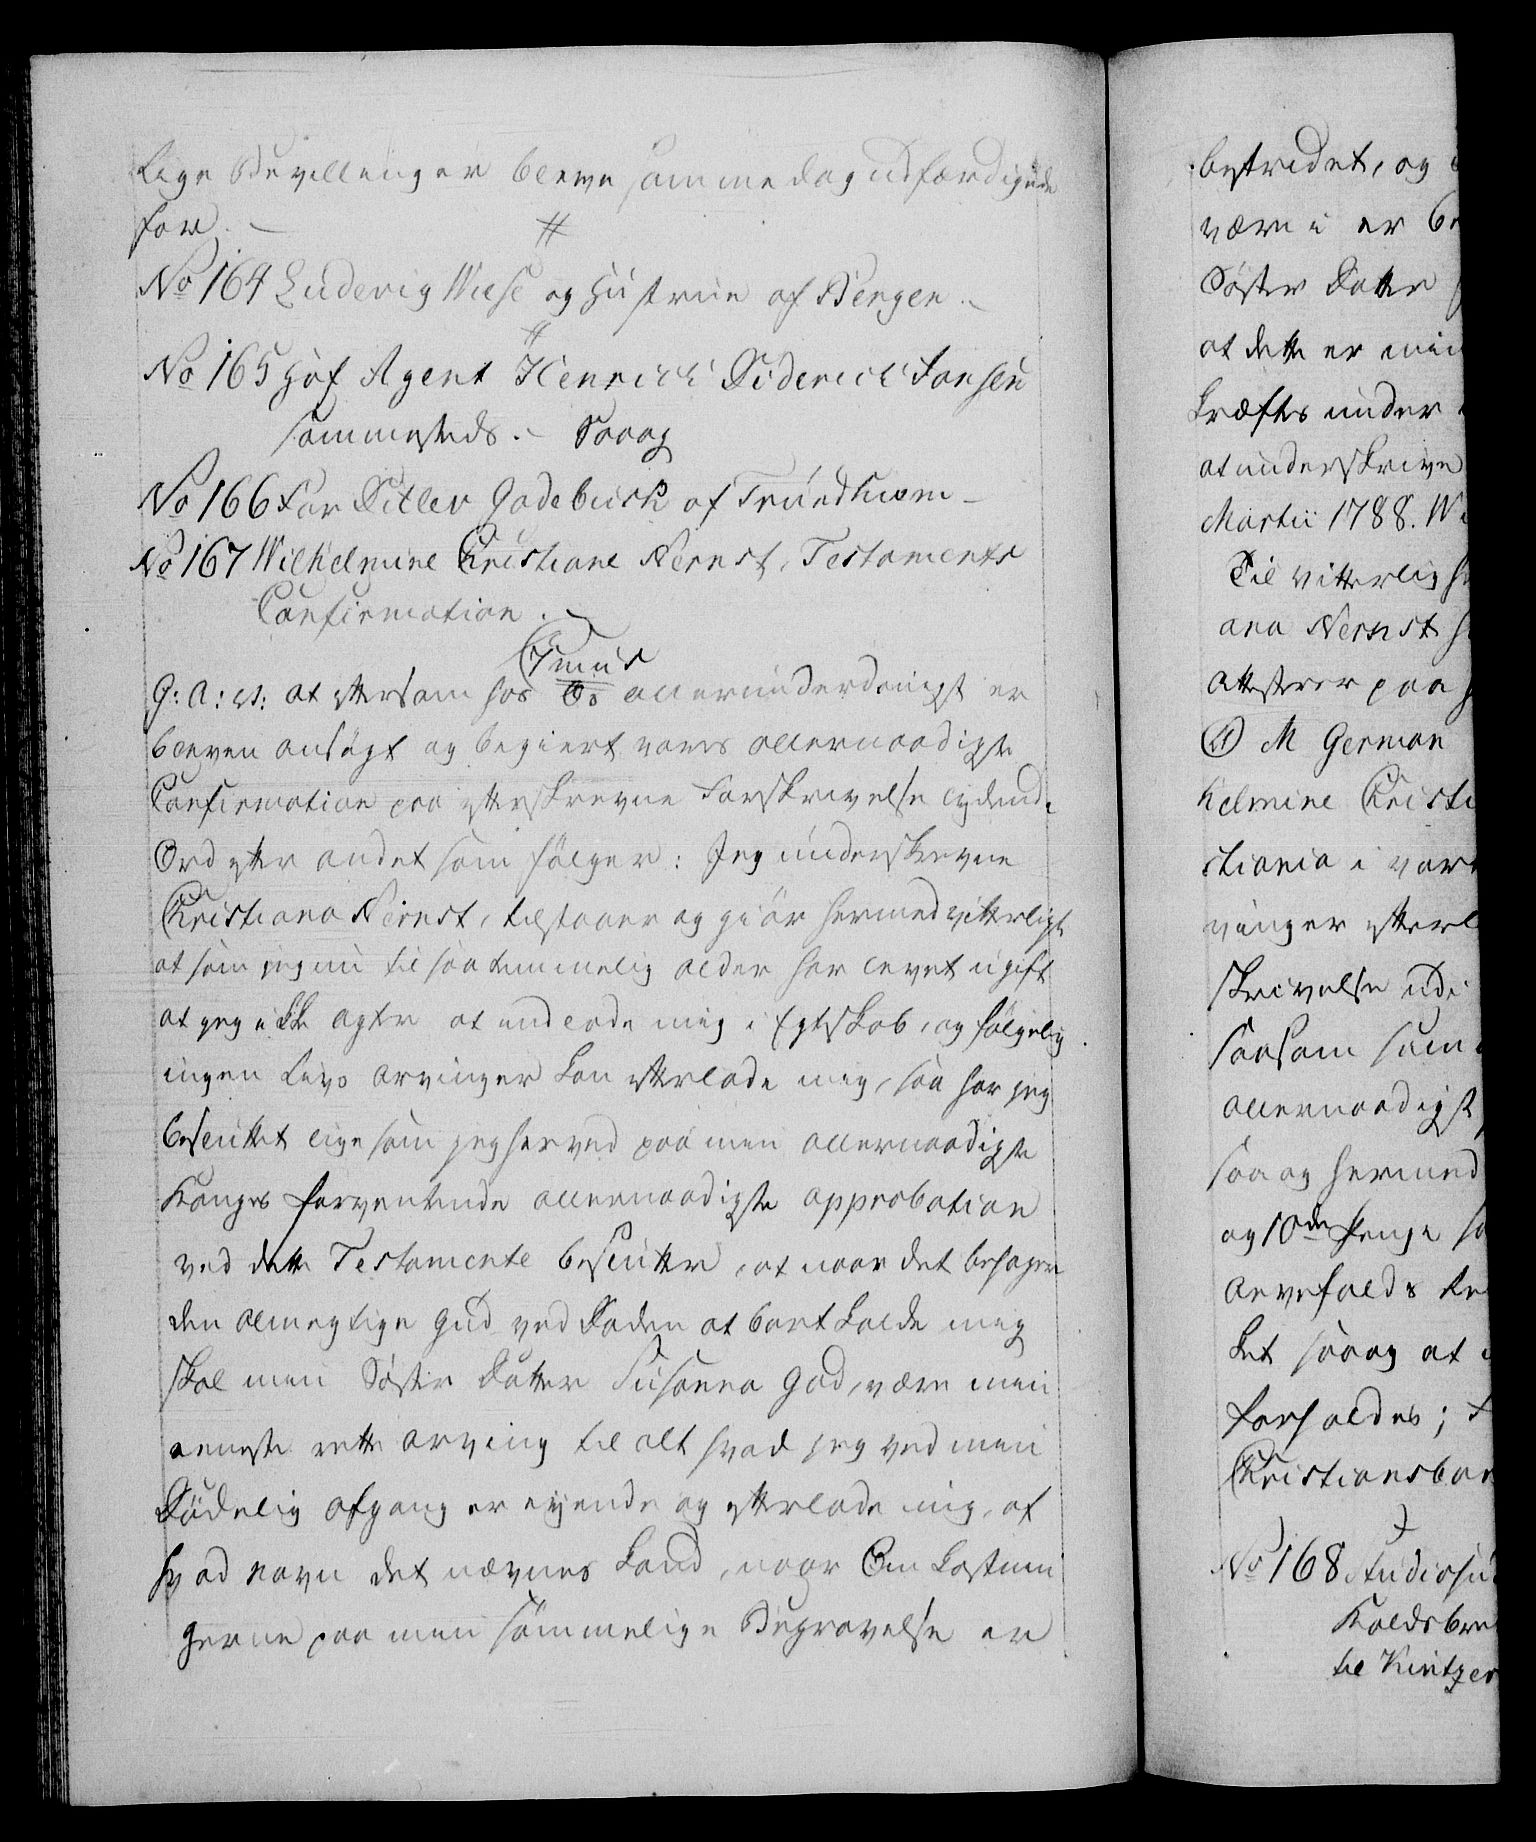 Lige Bevillinger bleve samme dag udfærdigede
for. —
No 164 Ludevig Wiese og Hustrue af Bergen. —
No 165 Hof Agent Henrich Diderich Jansen
sammesteds. — Saaog
No 166 For Ditlev Gadebusch af Trundhiem —
No 167 Wilhelmine Christiane Nernst, Testaments
Confirmation. —
G: A: V: at eftersom hos Os allerunderdanigst er
bleven ansøgt og begiert vores allernaadigste
Confirmation paa efterskrevne Forskrivelse lydende
Ord efter andet som følger: Jeg underskrevne
Christiana Nernst, tilstaaer og giør hermed vitterligt
at som jeg nu til saa temmelig alder har levet ugift
at jeg ikke agter at indlade mig i Egteskab, og følgelig
ingen Livs arvinger kan efterlade mig, saa har jeg
besluttet lige som jeg herved paa min allernaadigste
Konges forventende allernaadigste approbation
ved dette Testamente beslutter, at naar det behager
den almegtige Gud ved Døden at bortkalde mig
skal min Søster Datter Susanna God, være min
eneste rette arving til alt hvad jeg ved min
Dødelig afgang er eyende og efterlade mig, af
hvad navn det nævnes kand, naar Omkostnin
gerne paa min sømmelige Begravelse er
bestredet, og
være i er
Søster Datter
at dette er min
kræftes under
at underskrive
Martii 1788. W
Til vitterlig
ana Nernst
attesterer paa
M German
helmine Christi
stiania i vor
vinger efterl
skrivelse udi
saasom
allernaadigst
saa og hermed
og 10de Penge
Arvefalds
ket saaog at
forholdes;
Christiansbor
No 168 Studiosus
Koldsbre
til